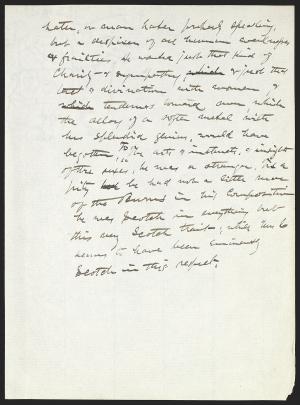 hater, or man hater properly speaking,
but a despiser of all human weaknesses
& frailties, he wants just that kind of
Charity & sympathy & just that
& divination with women &
tenderness toward men, which
the alloy of a softer metal with
his splendid genius, would have
begotten; to the arts & instincts, & insight
of the sexes, he was a stranger. 'Tis a
pity he had not a little more
of the Burns in his composition
he was Scotch in everything but
this very Scotch trait; which
seems to have been eminently
Scotch in this respect.